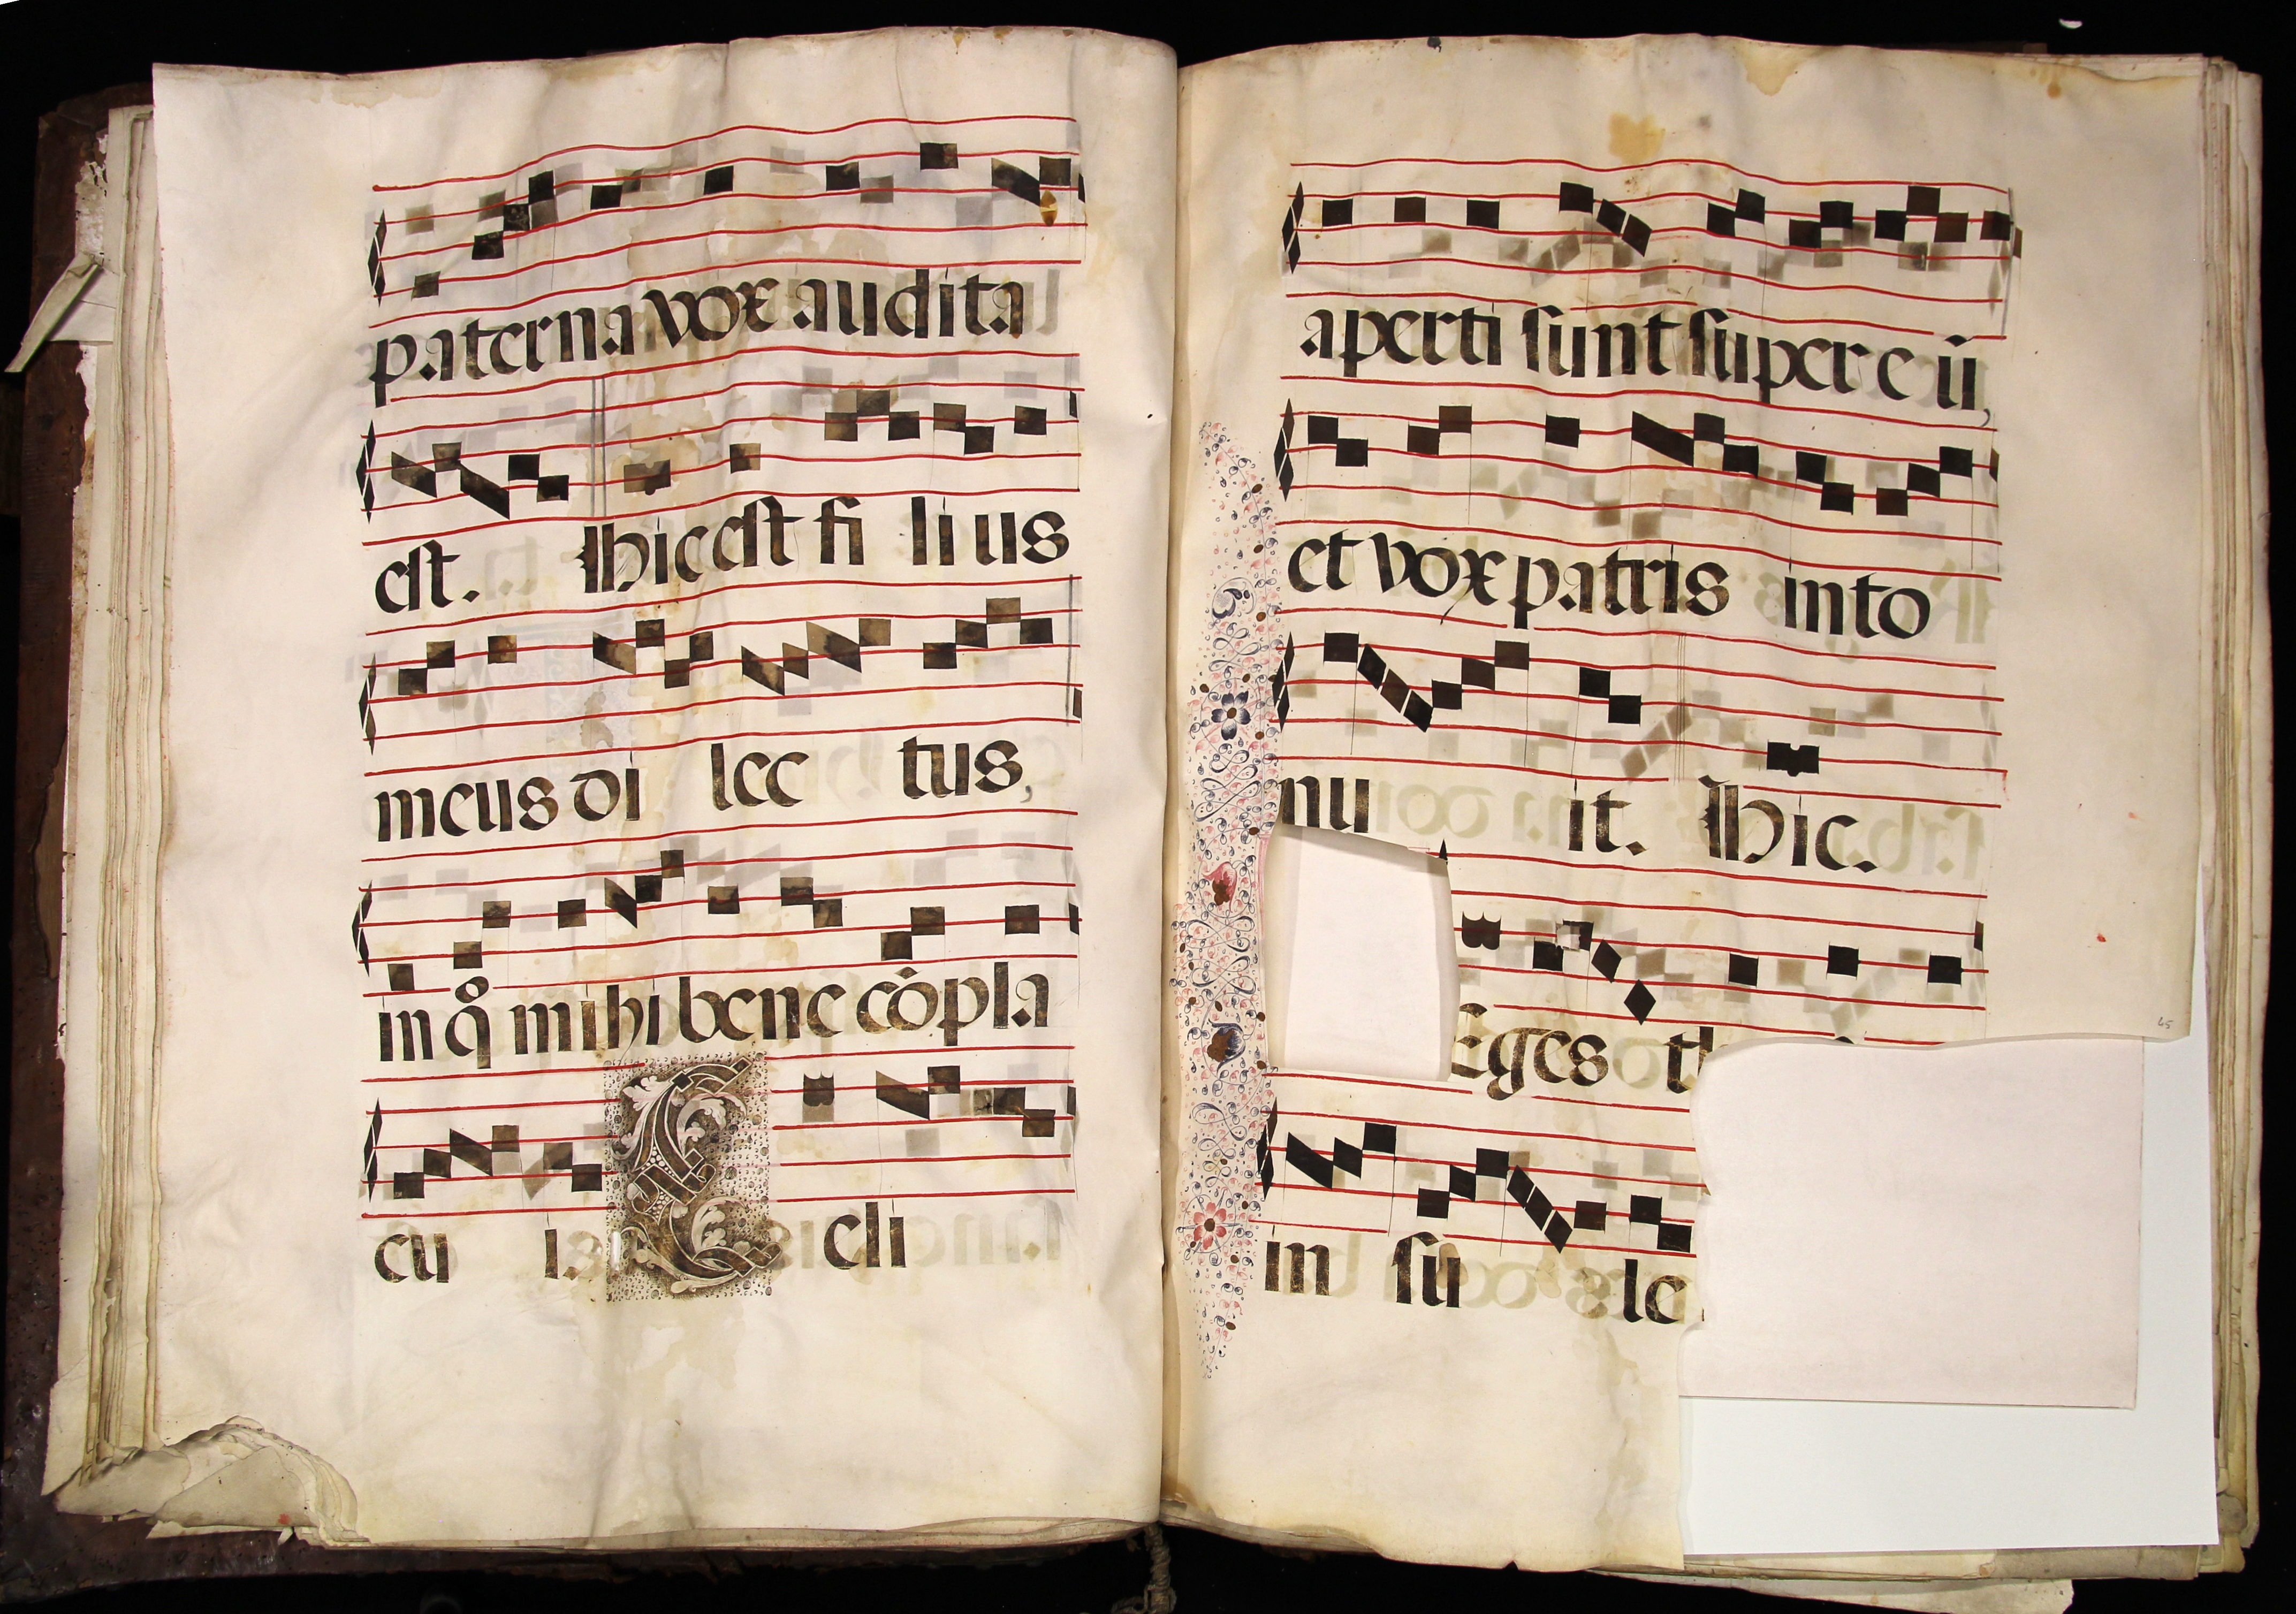 paterna vox audita
est. Hic est fi li us
meus di lec tus,
in q̊ mihi bene cōpla
cu i. Celi
aperti sunt super eū,
et vox patris into
nu it. Hic.
Eges th
in su le
45